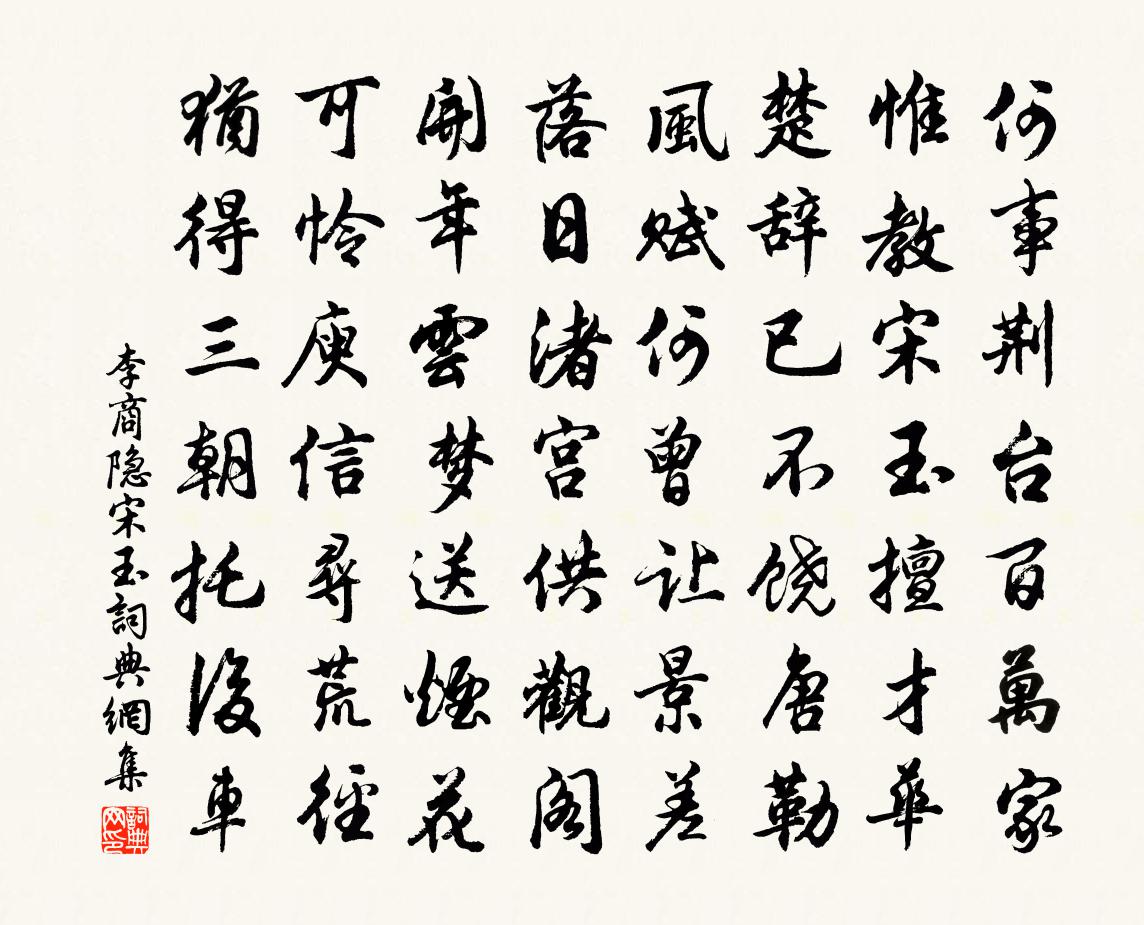 何事荆台百萬家
惟教宋玉擅才華
楚辞已不饶唐勒
風赋何曾让景差
落日渚宫供觀阁
開年雲梦送煙花
可怜庾信尋荒徑
猶得三朝托後車
李商隐宋玉詞典網集
詞典网印